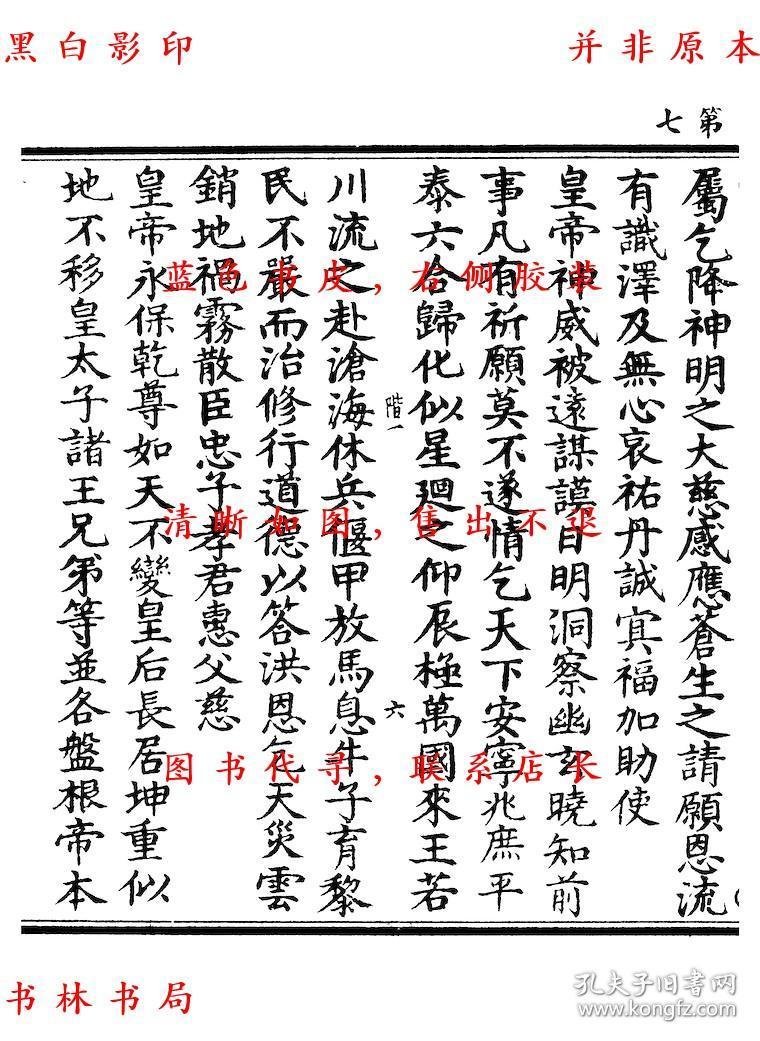 黑白影印
并非原本
第七
屬乞降神明之大慈感應蒼生之請願恩流
有識澤及無心哀祐丹誠冥福加助使
皇帝神威被遠謀謨自明洞察幽玄曉知前
事凡有祈願莫不遂情乞天下安寧兆庶平
泰六合歸化似星迴之仰辰極萬國來王若
階一
六
川流之赴滄海休兵偃甲放馬息牛子育黎
民不嚴而治修行道德以答洪恩乞天災雲
銷地禍霧散臣忠子孝君惠父慈
皇帝永保乾尊如天不變皇后長居坤重似
地不移皇太子諸王兄弟等並各盤根帝本
蓝色书皮，右侧胶装
清晰如图，售出不退
图书代寻，联系店长
书林书局
孔夫子旧书网
www.kongfz.com